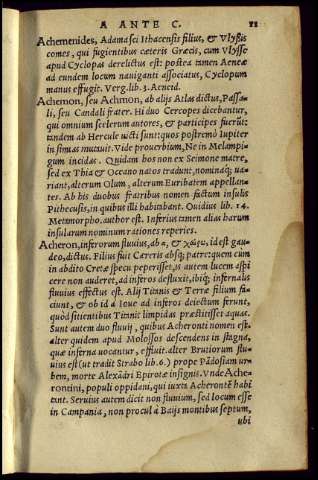 A ANTE C. 11
Achemenides, Adamasci Ithacensis filius, & Vlyßis
comes, qui fugientibus cæteris Græcis, cum Vlysse
apud Cyclopas derelictus est: postea tamen Aeneæ
ad eundem locum nauiganti associatus, Cyclopum
manus effugit. Verg. lib. 3. Aeneid.
Achemon, seu Achmon, ab alijs Atlas dictus, Passa-
li, seu Candali frater. Hi duo Cercopes dicebantur,
qui omnium scelerum autores, & participes fuerūt:
tandem ab Hercule uicti sunt: quos postremò Iupiter
in simias mutauit. Vide prouerbium, Ne in Melampi-
gum incidas. Quidam hos non ex Seimone matre,
sed ex Thia & Oceano natos tradunt, nominaq́; ua-
riant, alterum Olum, alterum Euribatem appellan-
tes. Ab his duobus fratribus nomen factum insulis
Pithecusis, in quibus illi habitabant. Ouidius lib. 14.
Metamorpho. author est. Inferius tamen alias harum
insularum nominum rationes reperies.
Acheron, inferorum fluuius, ab α, & χαίρω, id est gau-
deo, dictus. Filius fuit Cæreris absq́; patre: quem cum
in abdito Cretæ specu peperisset, is autem lucem aspi
cere non auderet, ad inferos defluxit, ibiq́; infernalis
fluuius effectus est. Alij Titanis & Terræ filium fa-
ciunt, & ob id à Ioue ad inferos deiectum ferunt,
quòd sitientibus Titanis limpidas præstitisset aquas.
Sunt autem duo fluuij, quibus Acheronti nomen est.
alter quidem apud Molossos descendens in stagna,
quæ inferna uocantur, effluit. alter Brutiorum flu-
uius est (ut tradit Strabo lib. 6.) prope Pādosiam ur-
bem, morte Alexādri Epirotæ insignis. Vnde Ache-
rontini, populi oppidani, qui iuxta Acherontē habi
tant. Seruius autem dicit non fluuium, sed locum esse
in Campania, non procul à Baijs montibus septum,
ubi